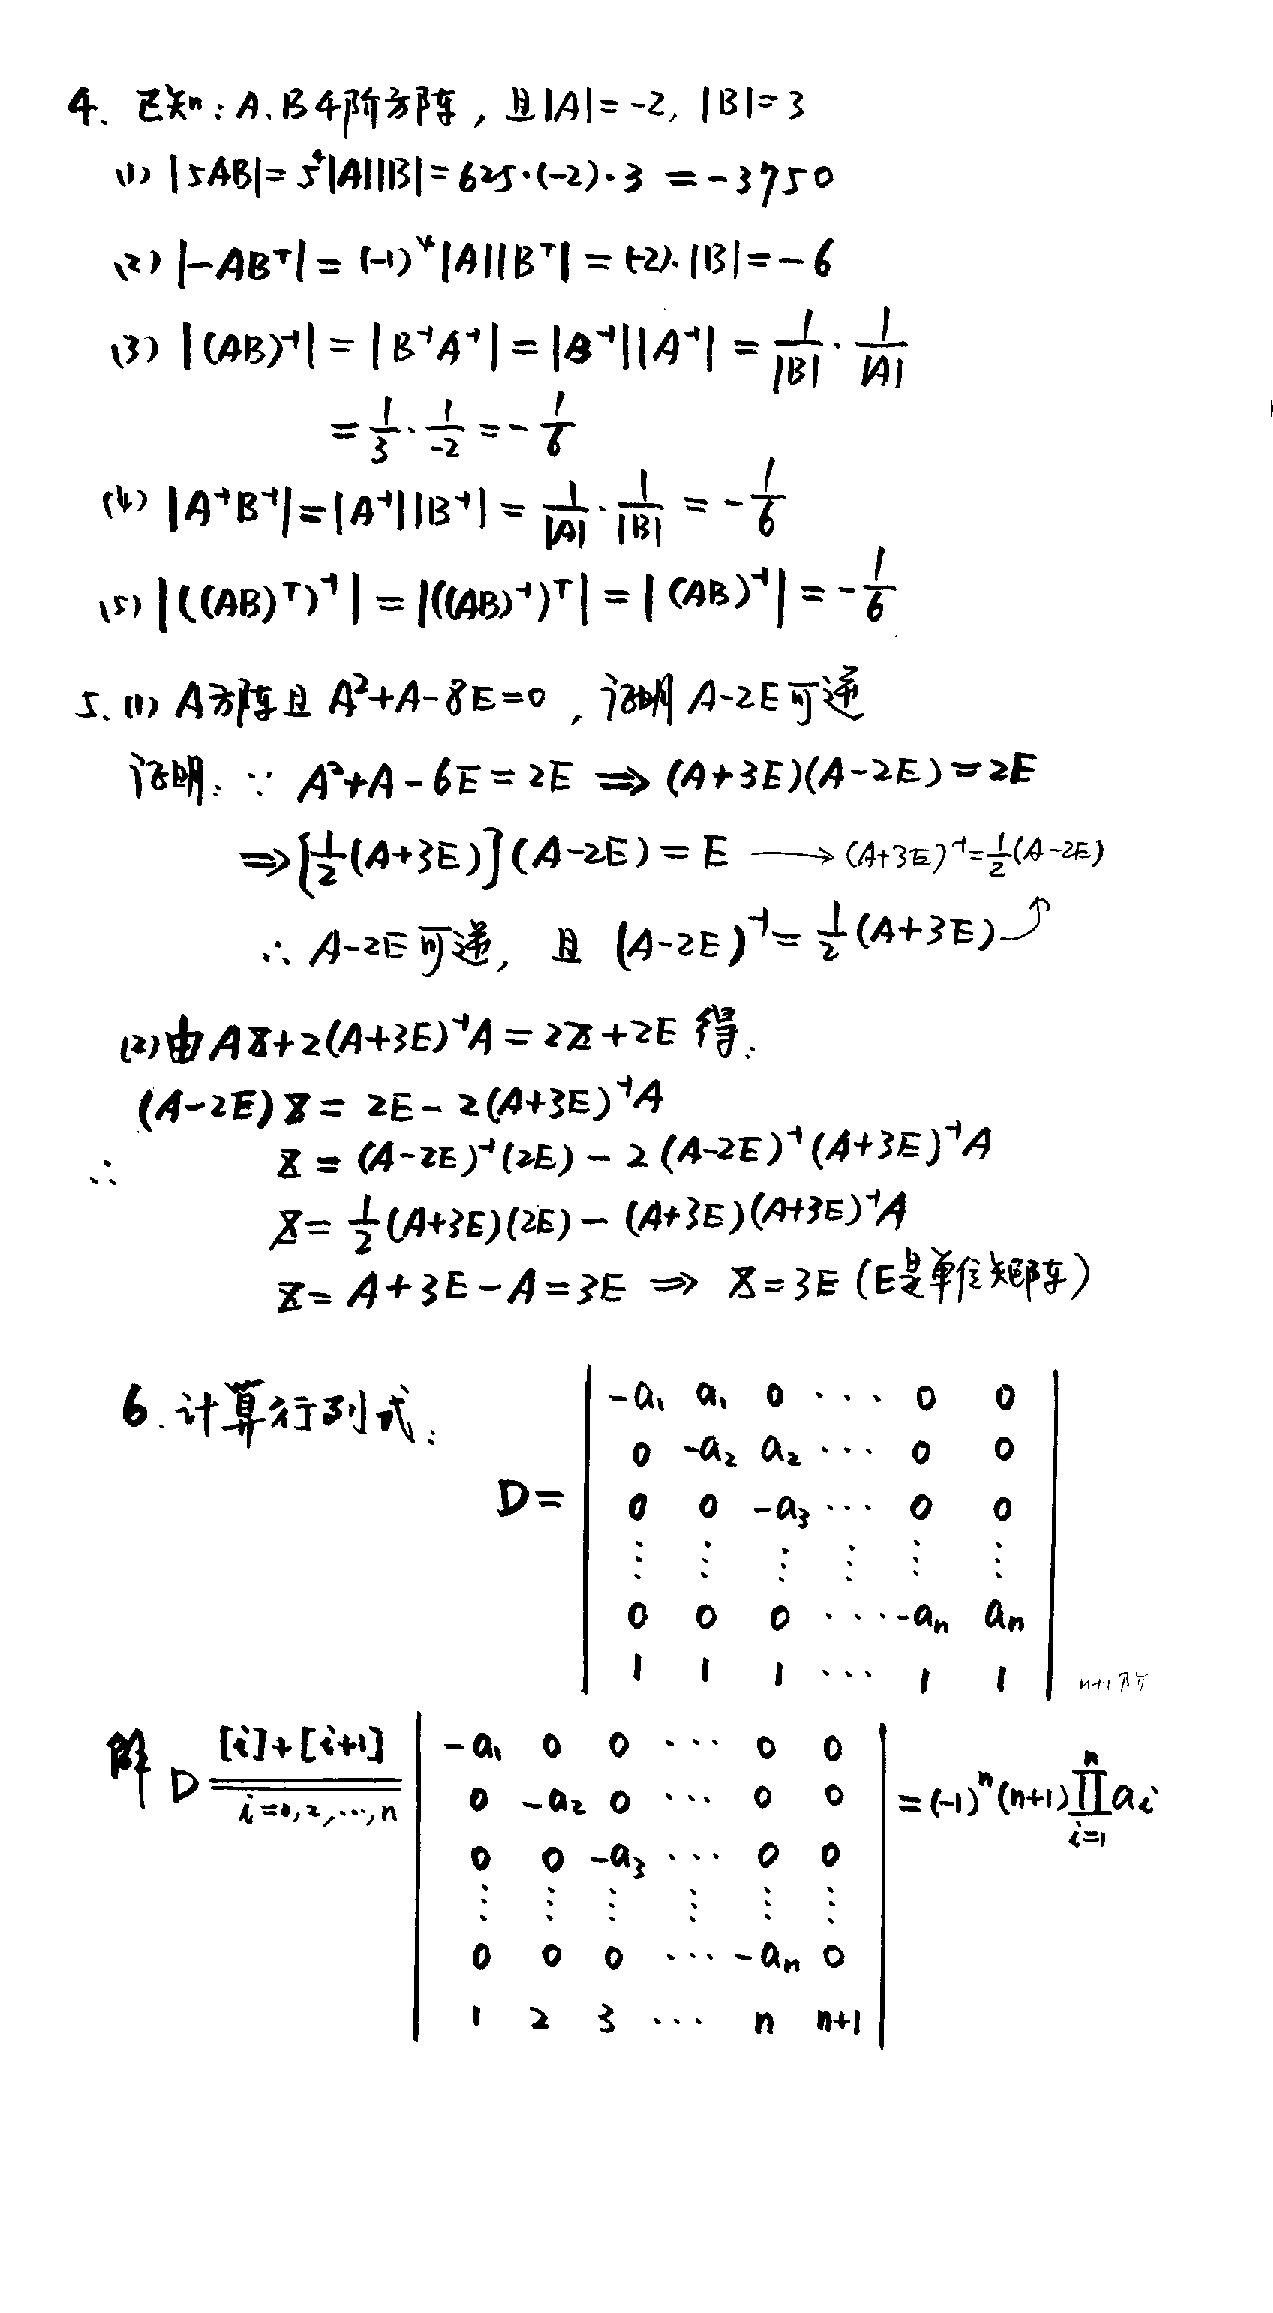 4. 已知：A.B4阶方阵，且|A|=-2, |B|=3
(1) |5AB|=5⁴|A||B|=625·(-2)·3=-3750
(2) |-ABᵀ|=(-1)⁴|A||Bᵀ|=(-2)·|B|=-6
(3) |(AB)⁻¹|=|B⁻¹A⁻¹|=|B⁻¹||A⁻¹|=1/|B|·1/|A|
=1/3·1/-2=-1/6
(4) |A⁻¹B⁻¹|=|A⁻¹||B⁻¹|=1/|A|·1/|B|=-1/6
(5) |((AB)ᵀ)⁻¹|=|((AB)⁻¹)ᵀ|=|(AB)⁻¹|=-1/6
5. (1) A方阵且A²+A-8E=0，证明A-2E可逆
证明：∵ A²+A-6E=2E ⇒ (A+3E)(A-2E)=2E
⇒[1/2(A+3E)](A-2E)=E → (A+3E)⁻¹=1/2(A-2E)
∴ A-2E可逆，且 (A-2E)⁻¹=1/2(A+3E)
(2)由AX+2(A+3E)⁻¹A=2X+2E得：
(A-2E)X=2E-2(A+3E)⁻¹A
∴ X=(A-2E)⁻¹(2E)-2(A-2E)⁻¹(A+3E)⁻¹A
X=1/2(A+3E)(2E)-(A+3E)(A+3E)⁻¹A
X=A+3E-A=3E ⇒ X=3E(E是单位矩阵)
6. 计算行列式：
-a₁ a₁ 0 ··· 0 0
0 -a₂ a₂ ··· 0 0
D= 0 0 -a₃ ··· 0 0
⋮ ⋮ ⋮ ⋮ ⋮ ⋮
0 0 0 ··· -aₙ aₙ
1 1 1 ··· 1 1 n+1阶
解 D [i]+[i+1] i=1,2,···,n
-a₁ 0 0 ··· 0 0
0 -a₂ 0 ··· 0 0 =(-1)ⁿ(n+1)∏ⁿᵢ₌₁aᵢ
0 0 -a₃ ··· 0 0
⋮ ⋮ ⋮ ⋮ ⋮ ⋮
0 0 0 ··· -aₙ 0
1 2 3 ··· n n+1